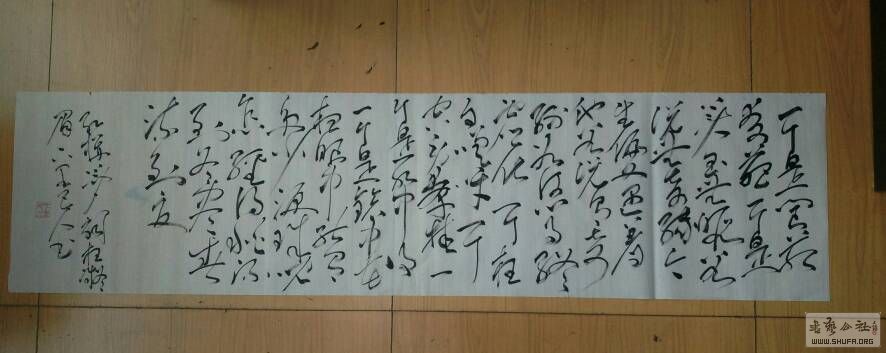 一个是阆苑
仙葩一个是
美玉无瑕若
说没奇缘今
生偏又遇着
他若说有奇
缘如何心事终
虚化一个枉
自嗟呀一个
空劳牵挂一
个是水中月
一个是镜中花
想眼中能有
多少泪珠儿
怎经得秋流
到冬尽春
流到夏
红楼梦词枉凝
眉
书艺公社
WWW.SHUFA.ORG